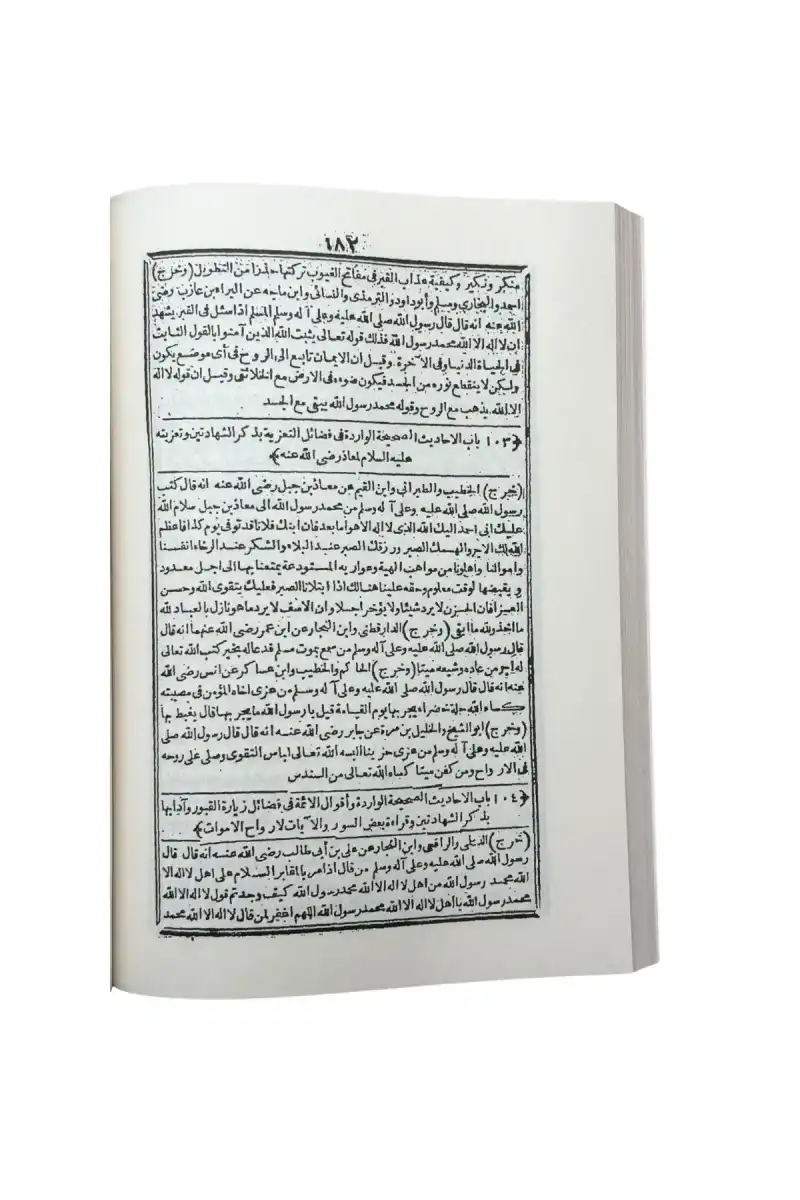 ١٨٢
منكر ونكير وكيفية عذاب القبر في مفاتح الغيوب تركتها حذرا من التطويل (وخرج)
احمد والبخاري ومسلم وأبو داود والترمذي والنسائي وابن ماجه عن البراء بن عازب رضى
الله عنه انه قال قال رسول الله صلى الله عليه وعلى آله وسلم المسلم اذا سئل في القبر يشهد
ان لا اله الا الله محمد رسول الله فذلك قوله تعالى يثبت الله الذين آمنوا بالقول الثابت
في الحياة الدنيا وفي الآخرة وقيل ان الايمان تابع الى الروح في أى موضع يكون
ولكن لا ينقطع نوره من الجسد فيكون ضوءه في الارض مع الخلائق وقيل ان قوله لا اله
الا الله يذهب مع الروح وقوله محمد رسول الله يبقى مع الجسد
﴿١٠٣ باب الاحاديث الصحيحة الواردة في فضائل التعزية بذكر الشهادتين وتعزيته
عليه السلام لمعاذ رضى الله عنه﴾
(خرج) الخطيب والطبرانى وابن القيم عن معاذ بن جبل رضى الله عنه انه قال كتب
رسول الله صلى الله عليه وعلى آله وسلم من محمد رسول الله الى معاذ بن جبل سلام الله
عليك انى احمد اليك الله الذى لا اله الا هو أما بعد فان ابنك فلانا قد توفى يوم كذا فاعظم
الله لك الاجر والهمك الصبر ورزقك الصبر عند البلاء والشكر عند الرخاء انفسنا
واموالنا واهلونا من مواهب الهية وعواريه المستودعة يمتعنا بها الى اجل معدود
و يقبضها لوقت معلوم وحقه علينا هنالك اذا ابتلانا الصبر فعليك بتقوى الله وحسن
العزاء فان الحزن لا يرد شيئا ولا يؤخر اجلا وان الاسف لا يرد ما هو نازل بالعباد لله
ما اخذ ولله ما ابقى (وخرج) الدارقطنى وابن النجار عن ابن عمر رضى الله عنهما انه قال
قال رسول الله صلى الله عليه وعلى آله وسلم من سمع بموت مسلم فدعا له بخير كتب الله تعالى
له اجر من عاده وشيعه ميتا (وخرج) الحاكم والخطيب وابن عساكر عن انس رضى الله
عنه انه قال قال رسول الله صلى الله عليه وعلى آله وسلم من عزى اخاه المؤمن في مصيبته
كساه الله حلة خضراء يحبر بها يوم القيامة قيل يا رسول الله ما يحبر بها قال يغبط بها
(وخرج) ابو الشيخ والخليل بن مرة عن جابر رضى الله عنه انه قال قال رسول الله صلى
الله عليه وعلى آله وسلم من عزى حزينا البسه الله تعالى لباس التقوى وصلى على روحه
في الارواح ومن كفن ميتا كساه الله تعالى من السندس
﴿١٠٤ باب الاحاديث الصحيحة الواردة وأقوال الائمة في فضائل زيارة القبور وآدابها
بذكر الشهادتين وقراءة بعض السور والآيات لارواح الاموات﴾
(خرج) الديلمى والرافعى وابن النجار عن على بن أبى طالب رضى الله عنه انه قال قال
رسول الله صلى الله عليه وعلى آله وسلم من قال اذا مر بالمقابر السلام على اهل لا اله الا
الله محمد رسول الله من اهل لا اله الا الله محمد رسول الله كيف وجدتم قول لا اله الا الله
محمد رسول الله يا اهل لا اله الا الله محمد رسول الله اللهم اغفر لمن قال لا اله الا الله محمد